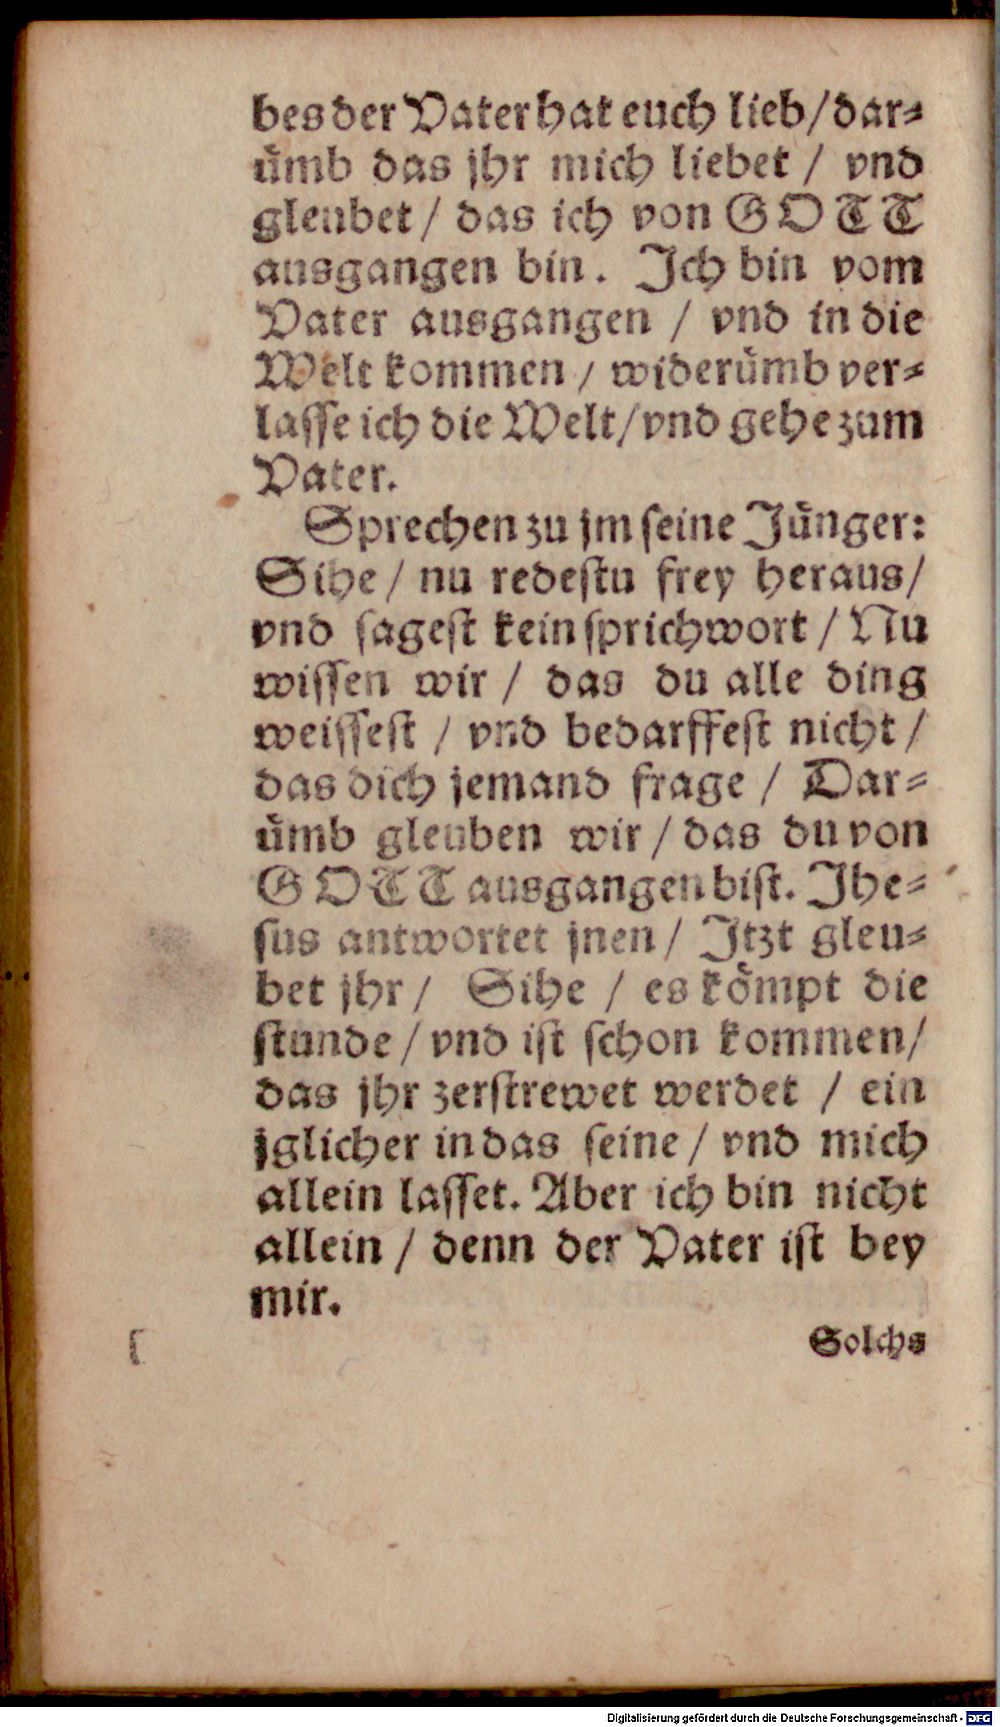 bes der Vater hat euch lieb/dar⸗
uͤmb das jhr mich liebet / vnd
gleubet / das ich von GOTT
ausgangen bin. Ich bin vom
Vater ausgangen / vnd in die
Welt kommen / wideruͤmb ver⸗
laſſe ich die Welt/vnd gehe zum
Vater.
Sprechen zu jm ſeine Juͤnger:
Sihe / nu redeſtu frey heraus/
vnd ſageſt kein ſprichwort / Nu
wiſſen wir / das du alle ding
weiſſeſt / vnd bedarffeſt nicht /
das dich jemand frage / Dar⸗
uͤmb gleuben wir / das du von
GOTT ausgangen biſt. Jhe⸗
ſus antwortet jnen / Itzt gleu⸗
bet jhr / Sihe / es koͤmpt die
ſtunde / vnd iſt ſchon kommen/
das jhr zerſtrewet werdet / ein
jglicher in das ſeine / vnd mich
allein laſſet. Aber ich bin nicht
allein / denn der Vater iſt bey
mir.
Solchs
Digitalisierung gefördert durch die Deutsche Forschungsgemeinschaft - DFG